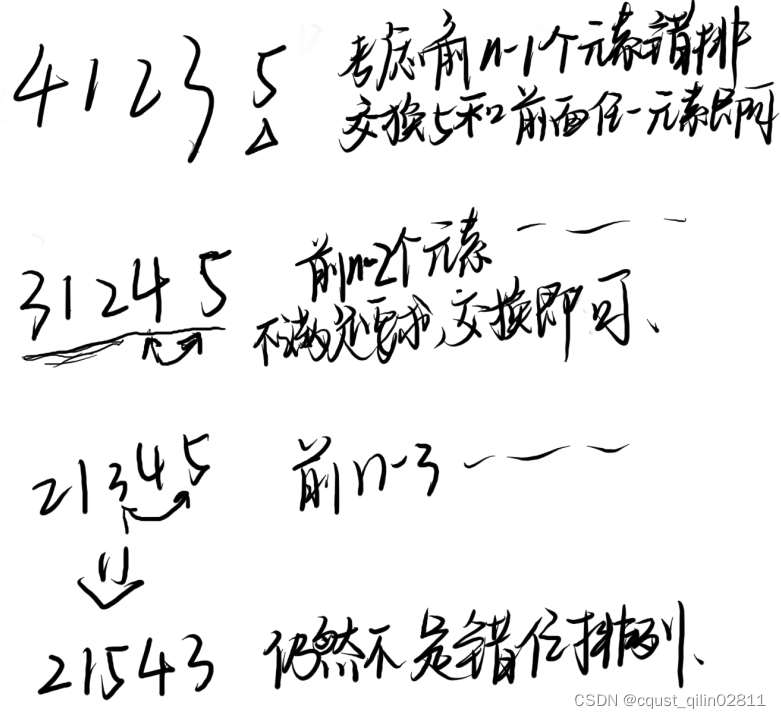 41235 考虑前n-1个元素错排
交换5和前面任一元素即可
31245 前n-2个元素
不满足要求,交换即可、
21345 前n-3
21543 仍然不是错位排列、
CSDN @cqust_qilin02811